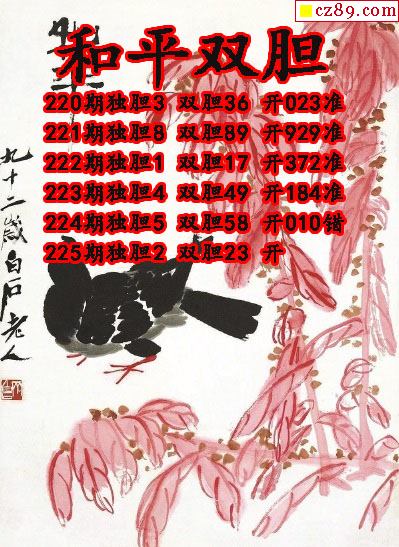 cz89.com
和平双胆
220期独胆3 双胆36 开023准
221期独胆8 双胆89 开929准
222期独胆1 双胆17 开372准
223期独胆4 双胆49 开184准
224期独胆5 双胆58 开010错
225期独胆2 双胆23 开
九十二岁白石老人